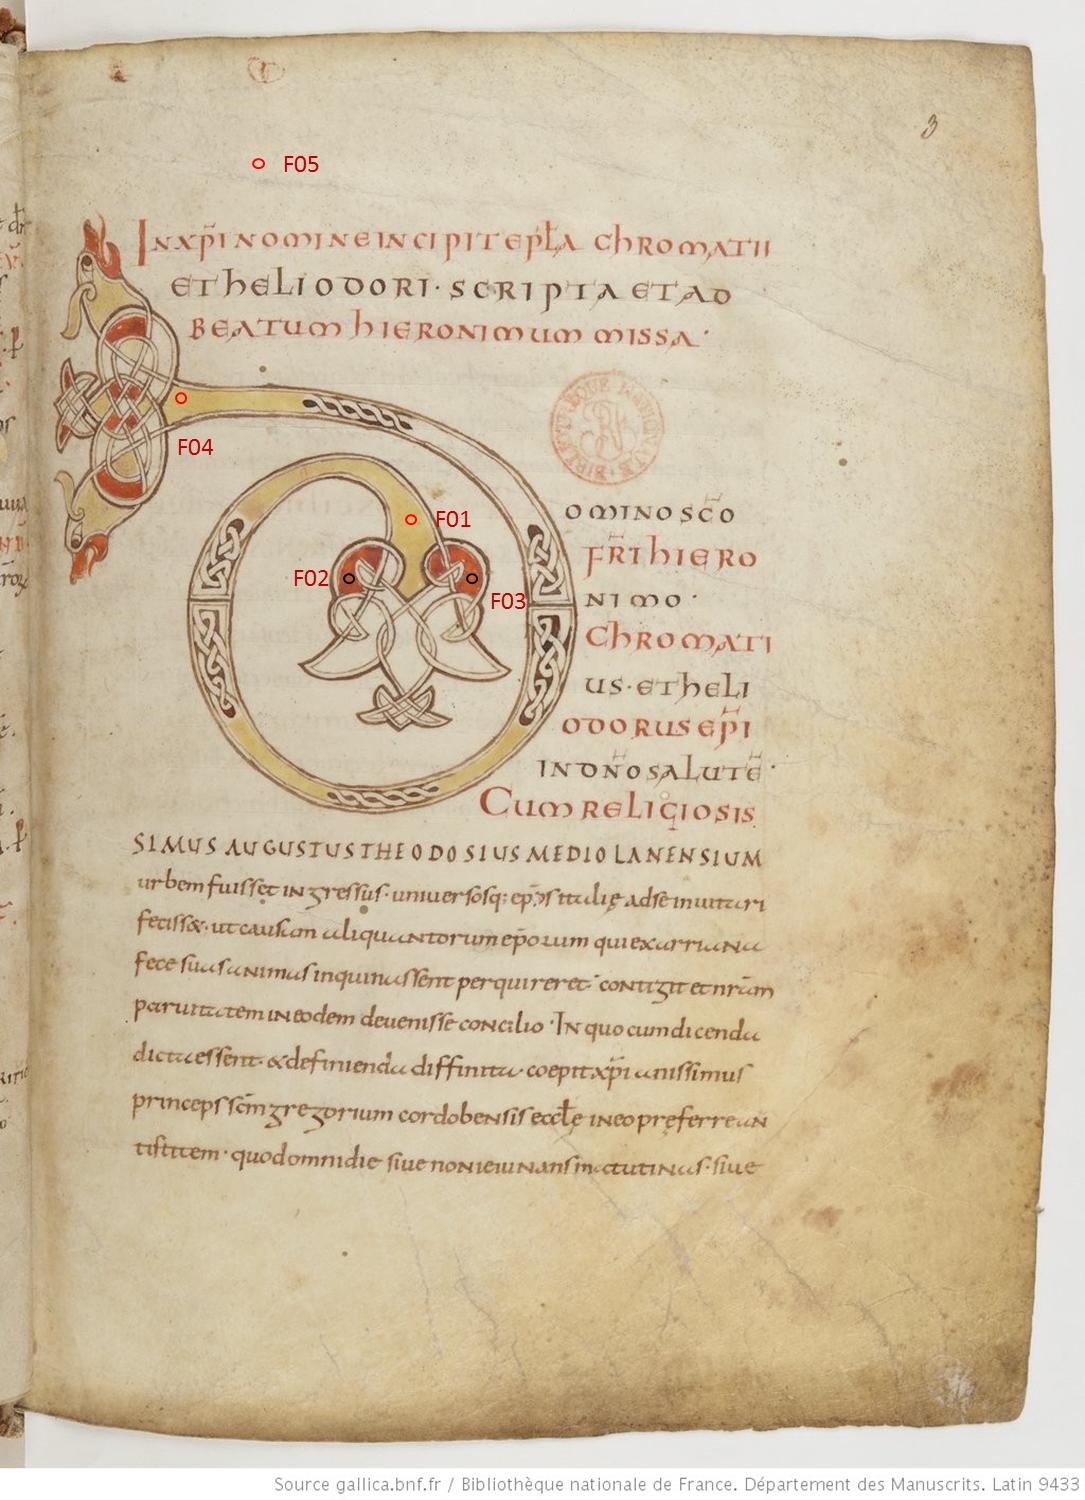 3
F05
IN XP̄I NOMINE INCIPIT EPL̄A CHROMATII
ET HELIODORI · SCRIPTA ET AD
BEATUM HIERONIMUM MISSA ·
F04
F01
F02
F03
OMINO SC̄O
FR̄I HIERO
NIMO ·
CHROMATI
US · ET HELI
ODORUS EP̄I
IN DN̄O SALUTĒ ·
CUM RELIGIOSIS
SIMUS AUGUSTUS THEODOSIUS MEDIOLANENSIUM
urbem fuisset ingressus · universosq; ep̄os italię ad se invitari
feciss& · ut causam aliquantorum ep̄orum qui ex arriana
fece suas animas inquinassent perquireret · contigit et nr̄am
parvitatem in eodem devenisse concilio · In quo cum dicenda
dicta essent · & definienda diffinita · coepit xp̄ianissimus
princeps sc̄m gregorium cordobensis eccl̄ę in eo pręferre an
tistitem · quod omni die sive non ieiunans matutinas · sive
Source gallica.bnf.fr / Bibliothèque nationale de France. Département des Manuscrits. Latin 9433